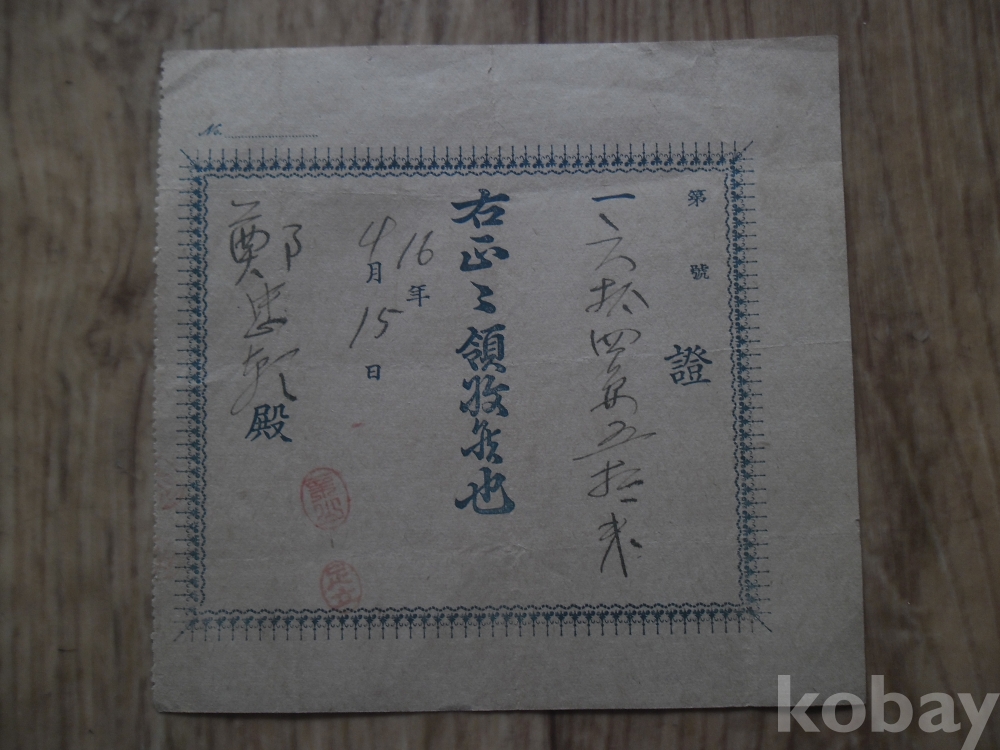 No.
第 號
證
一、六拾四
五拾
右正ニ領收候也
16年
4月15日
鄭忠 殿
kobay